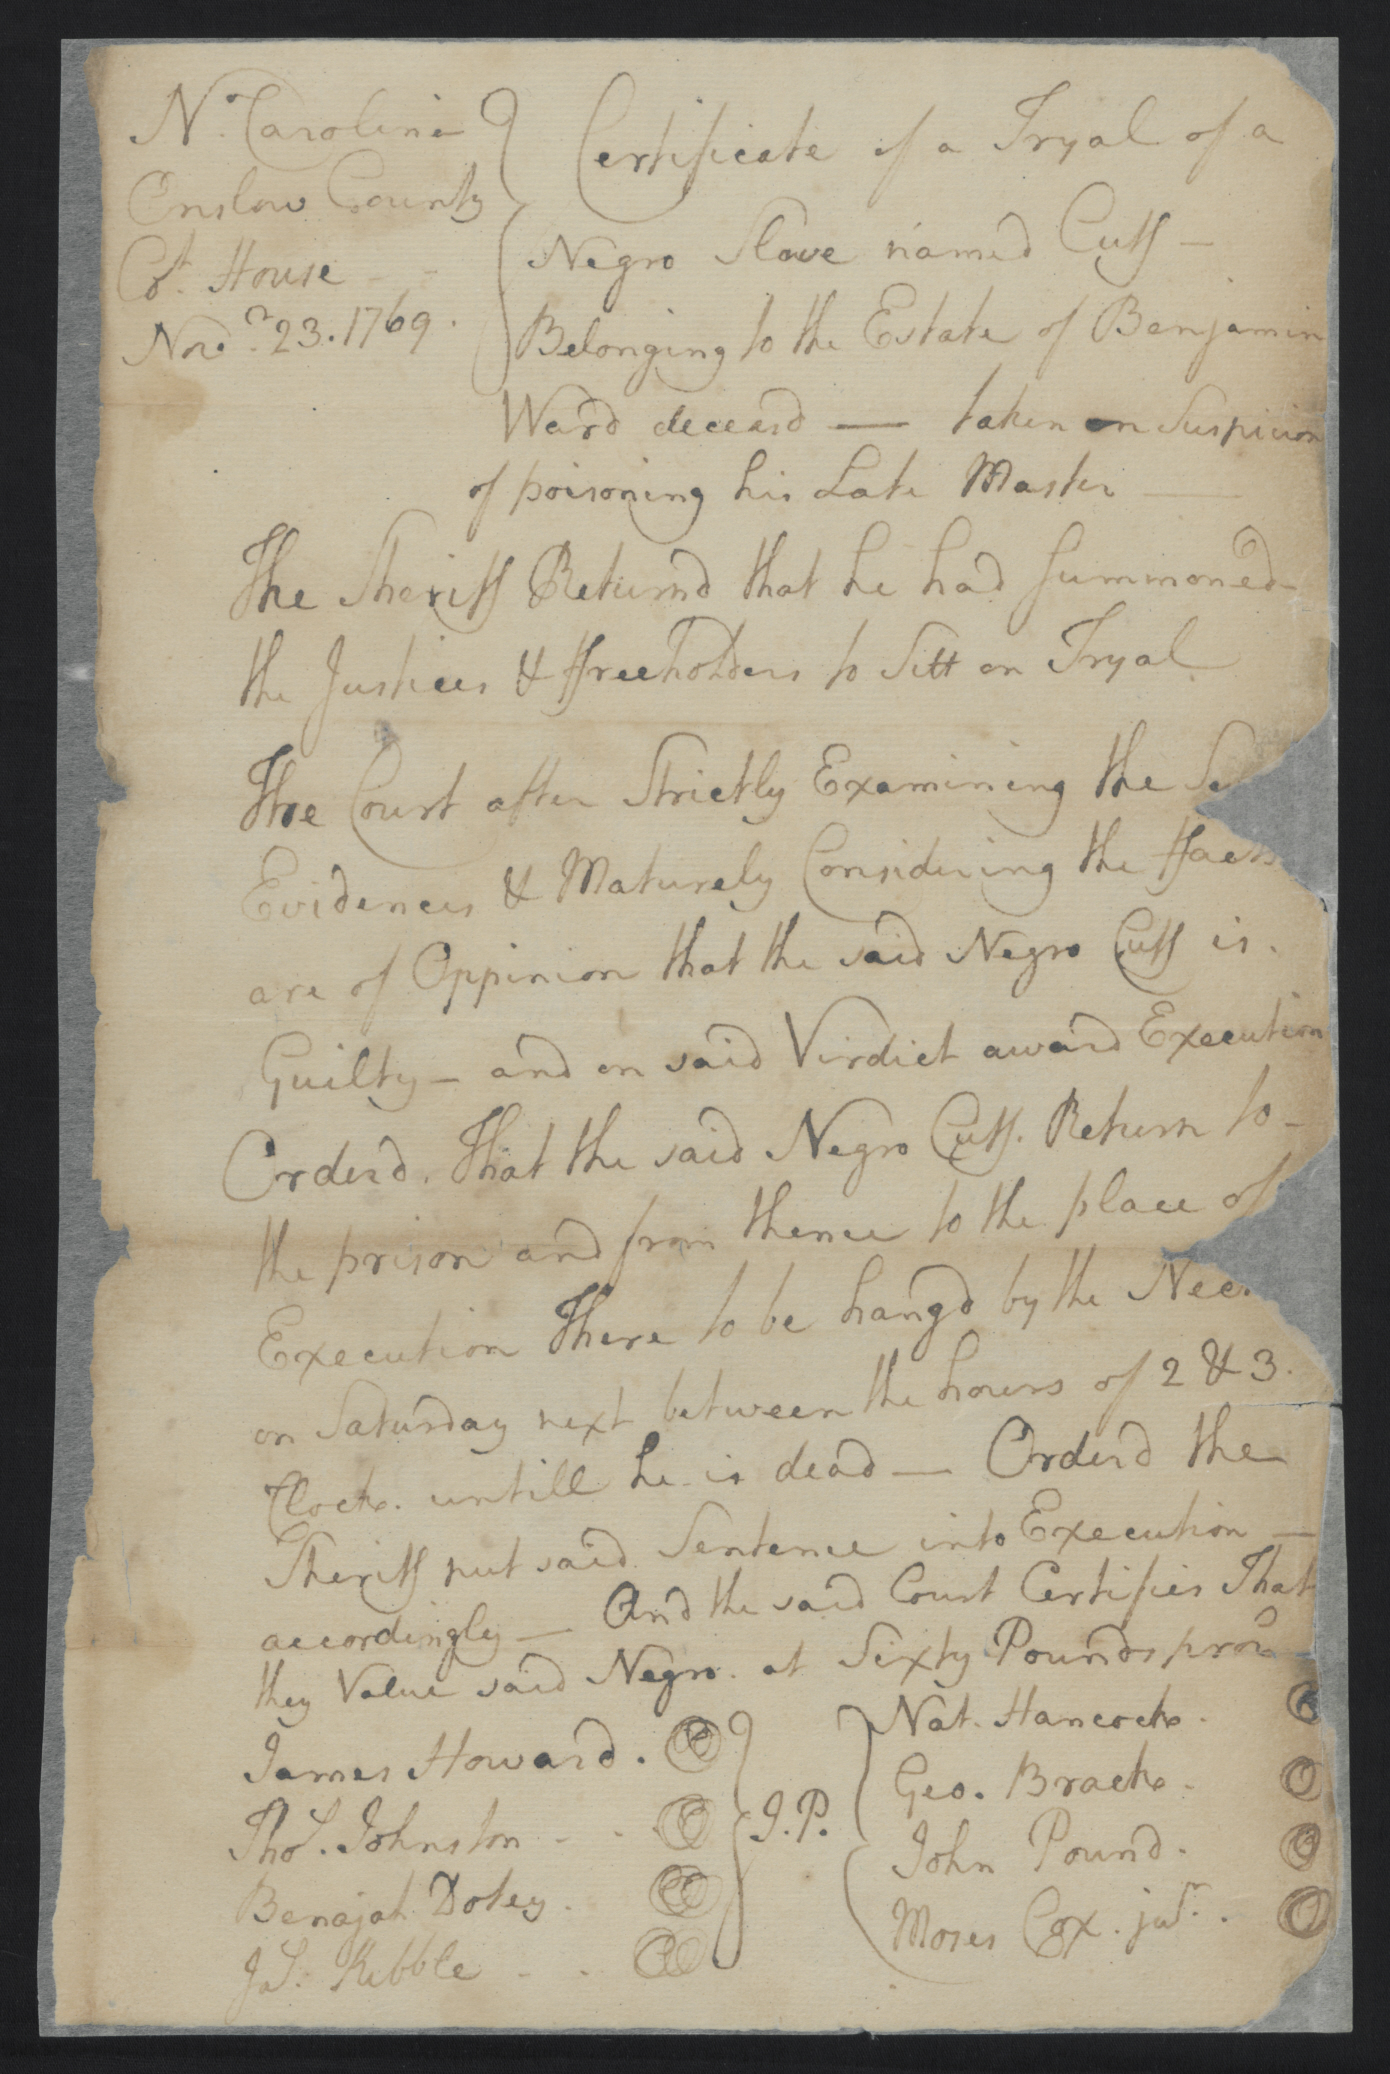 No. Carolina
Onslow County
Ct. House
Novr. 23. 1769.
Certificate of a Tryal of a
Negro Slave named Cuff —
Belonging to the Estate of Benjamin
Ward deceasd — taken on Suspicion
of poisoning his Late Master —
The Sheriff Returnd that he had Summoned
the Justices & ffreeholders to Sitt on Tryal
The Court after Strictly Examining the
Evidences & Maturely Considering the ffacts
are of Oppinion that the said Negro Cuff is.
Guilty — and on said Virdict award Execution
Orderd. That the said Negro Cuff. Return to
the prison and from thence to the place of
Execution There to be hangd by the Nec
on Saturday next between the hours of 2 & 3.
Clock. untill he is dead — Orderd the
Sheriff put said Sentence into Execution —
accordingly — And the said Court Certifies That
they Value said Negro. at Sixty Pounds proc
James Howard.
Thos. Johnston
Benajah Dotey.
Js. Kibble
J.P.
Nat. Hancock.
Geo. Brack.
John Pound.
Moses Cox. junr.